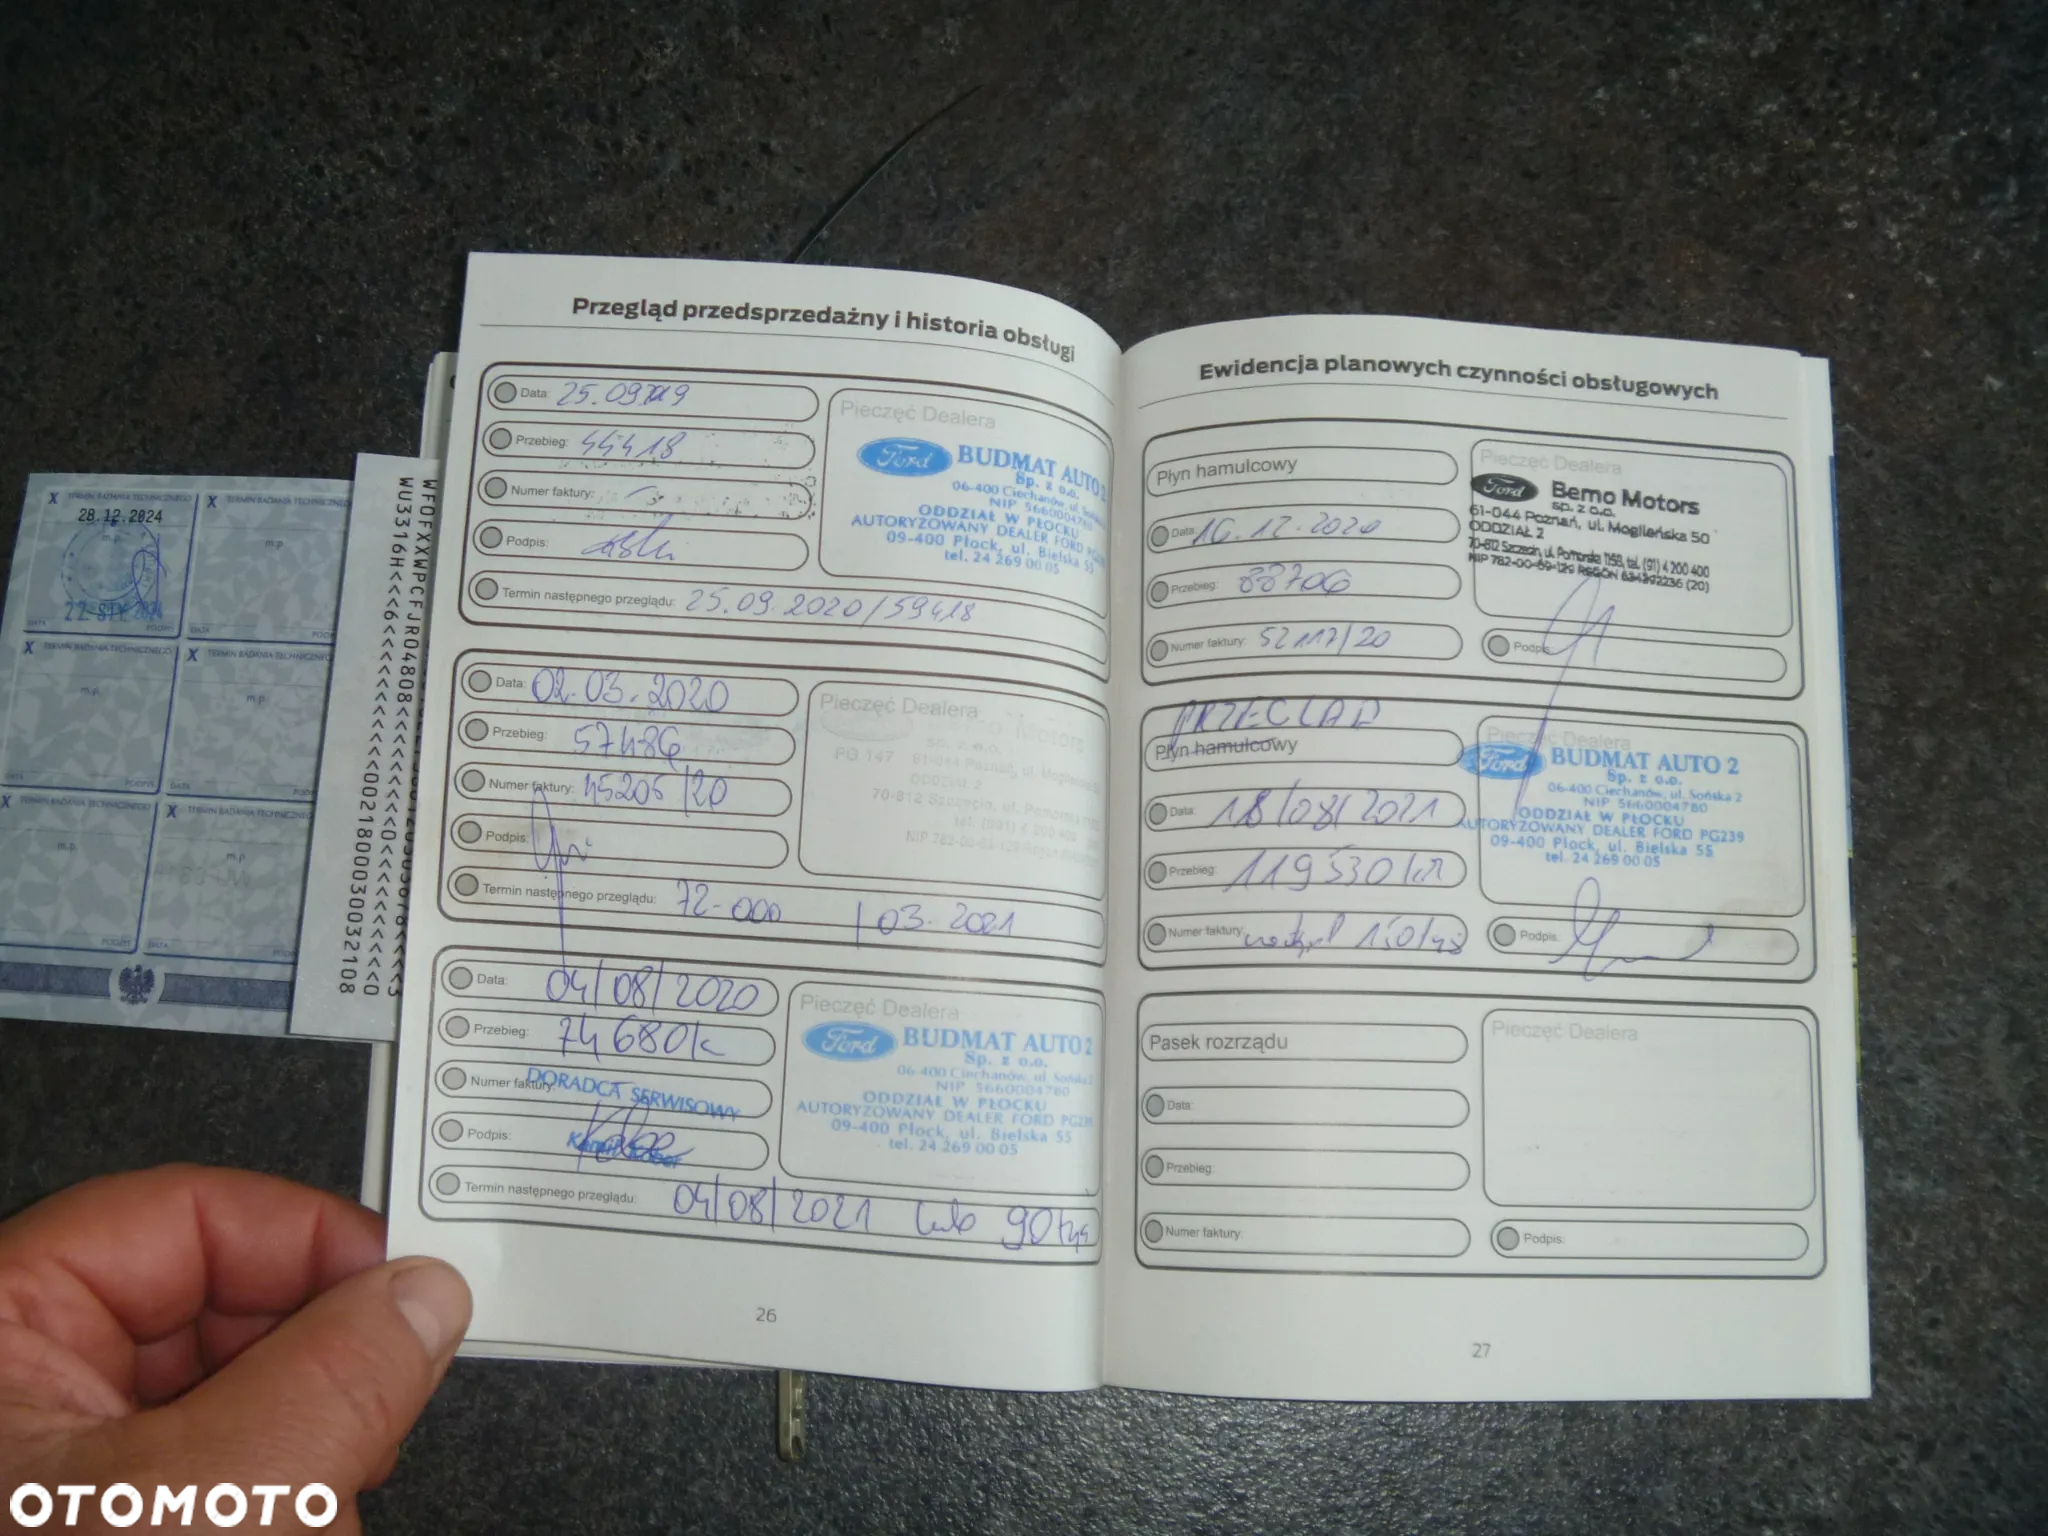 Przegląd przedsprzedażny i historia obsługi
Data: 25.09.2019
Przebieg: 44418
Numer faktury: -
Podpis:
Termin następnego przeglądu: 25.09.2020/59418
Pieczęć Dealera
Ford BUDMAT AUTO 2
Sp. z o.o.
06-400 Ciechanów, ul. Sońska 2
NIP 5660004780
ODDZIAŁ W PŁOCKU
AUTORYZOWANY DEALER FORD
09-400 Płock, ul. Bielska 55
tel. 24 269 00 05
Data: 02.03.2020
Przebieg: 57486
Numer faktury: 45205/20
Podpis:
Termin następnego przeglądu: 72-000 / 03.2021
Pieczęć Dealera
Motors
sp. z o.o.
PG 147 61-044 Poznań, ul. Mogileńska
ODDZIAŁ 2
70-812 Szczecin, ul. Pomorska
tel. (091) 4 200 400
NIP 782-00-69-129
Data: 04/08/2020
Przebieg: 74680k
Numer faktury: DORADCA SERWISOWY
Podpis:
Termin następnego przeglądu: 04/08/2021 lub 90tys
Pieczęć Dealera
Ford BUDMAT AUTO 2
Sp. z o.o.
06-400 Ciechanów, ul. Sońska 2
NIP 5660004780
ODDZIAŁ W PŁOCKU
AUTORYZOWANY DEALER FORD PG239
09-400 Płock, ul. Bielska 55
tel. 24 269 00 05
26
Ewidencja planowych czynności obsługowych
Płyn hamulcowy
Data: 16.12.2020
Przebieg: 88706
Numer faktury: 52117/20
Pieczęć Dealera
Ford Bemo Motors
sp. z o.o.
61-044 Poznań, ul. Mogileńska 50
ODDZIAŁ 2
70-812 Szczecin, ul. Pomorska 115B, tel. (91) 4 200 400
NIP 782-00-69-129 REGON 634292236 (20)
Podpis:
PRZEGLĄD
Płyn hamulcowy
Data: 18/08/2021
Przebieg: 119530km
Numer faktury: 150/tys
Pieczęć Dealera
Ford BUDMAT AUTO 2
Sp. z o.o.
06-400 Ciechanów, ul. Sońska 2
NIP 5660004780
ODDZIAŁ W PŁOCKU
AUTORYZOWANY DEALER FORD PG239
09-400 Płock, ul. Bielska 55
tel. 24 269 00 05
Podpis:
Pasek rozrządu
Data:
Przebieg:
Numer faktury:
Pieczęć Dealera
Podpis:
27
X TERMIN BADANIA TECHNICZNEGO
28.12.2024
m.p.
22. STY. 2024
DATA PODPIS
X TERMIN BADANIA TECHNICZNEGO
m.p.
DATA PODPIS
X TERMIN BADANIA TECHNICZNEGO
m.p.
DATA PODPIS
X TERMIN BADANIA TECHNICZNEGO
m.p.
DATA PODPIS
X TERMIN BADANIA TECHNICZNEGO
m.p.
PODPIS
X TERMIN BADANIA TECHNICZNEGO
m.p.
DATA PODPIS
WF0FXXWPCFJR04808
WU3316H<<<6<<<<<
0021800030032108
OTOMOTO